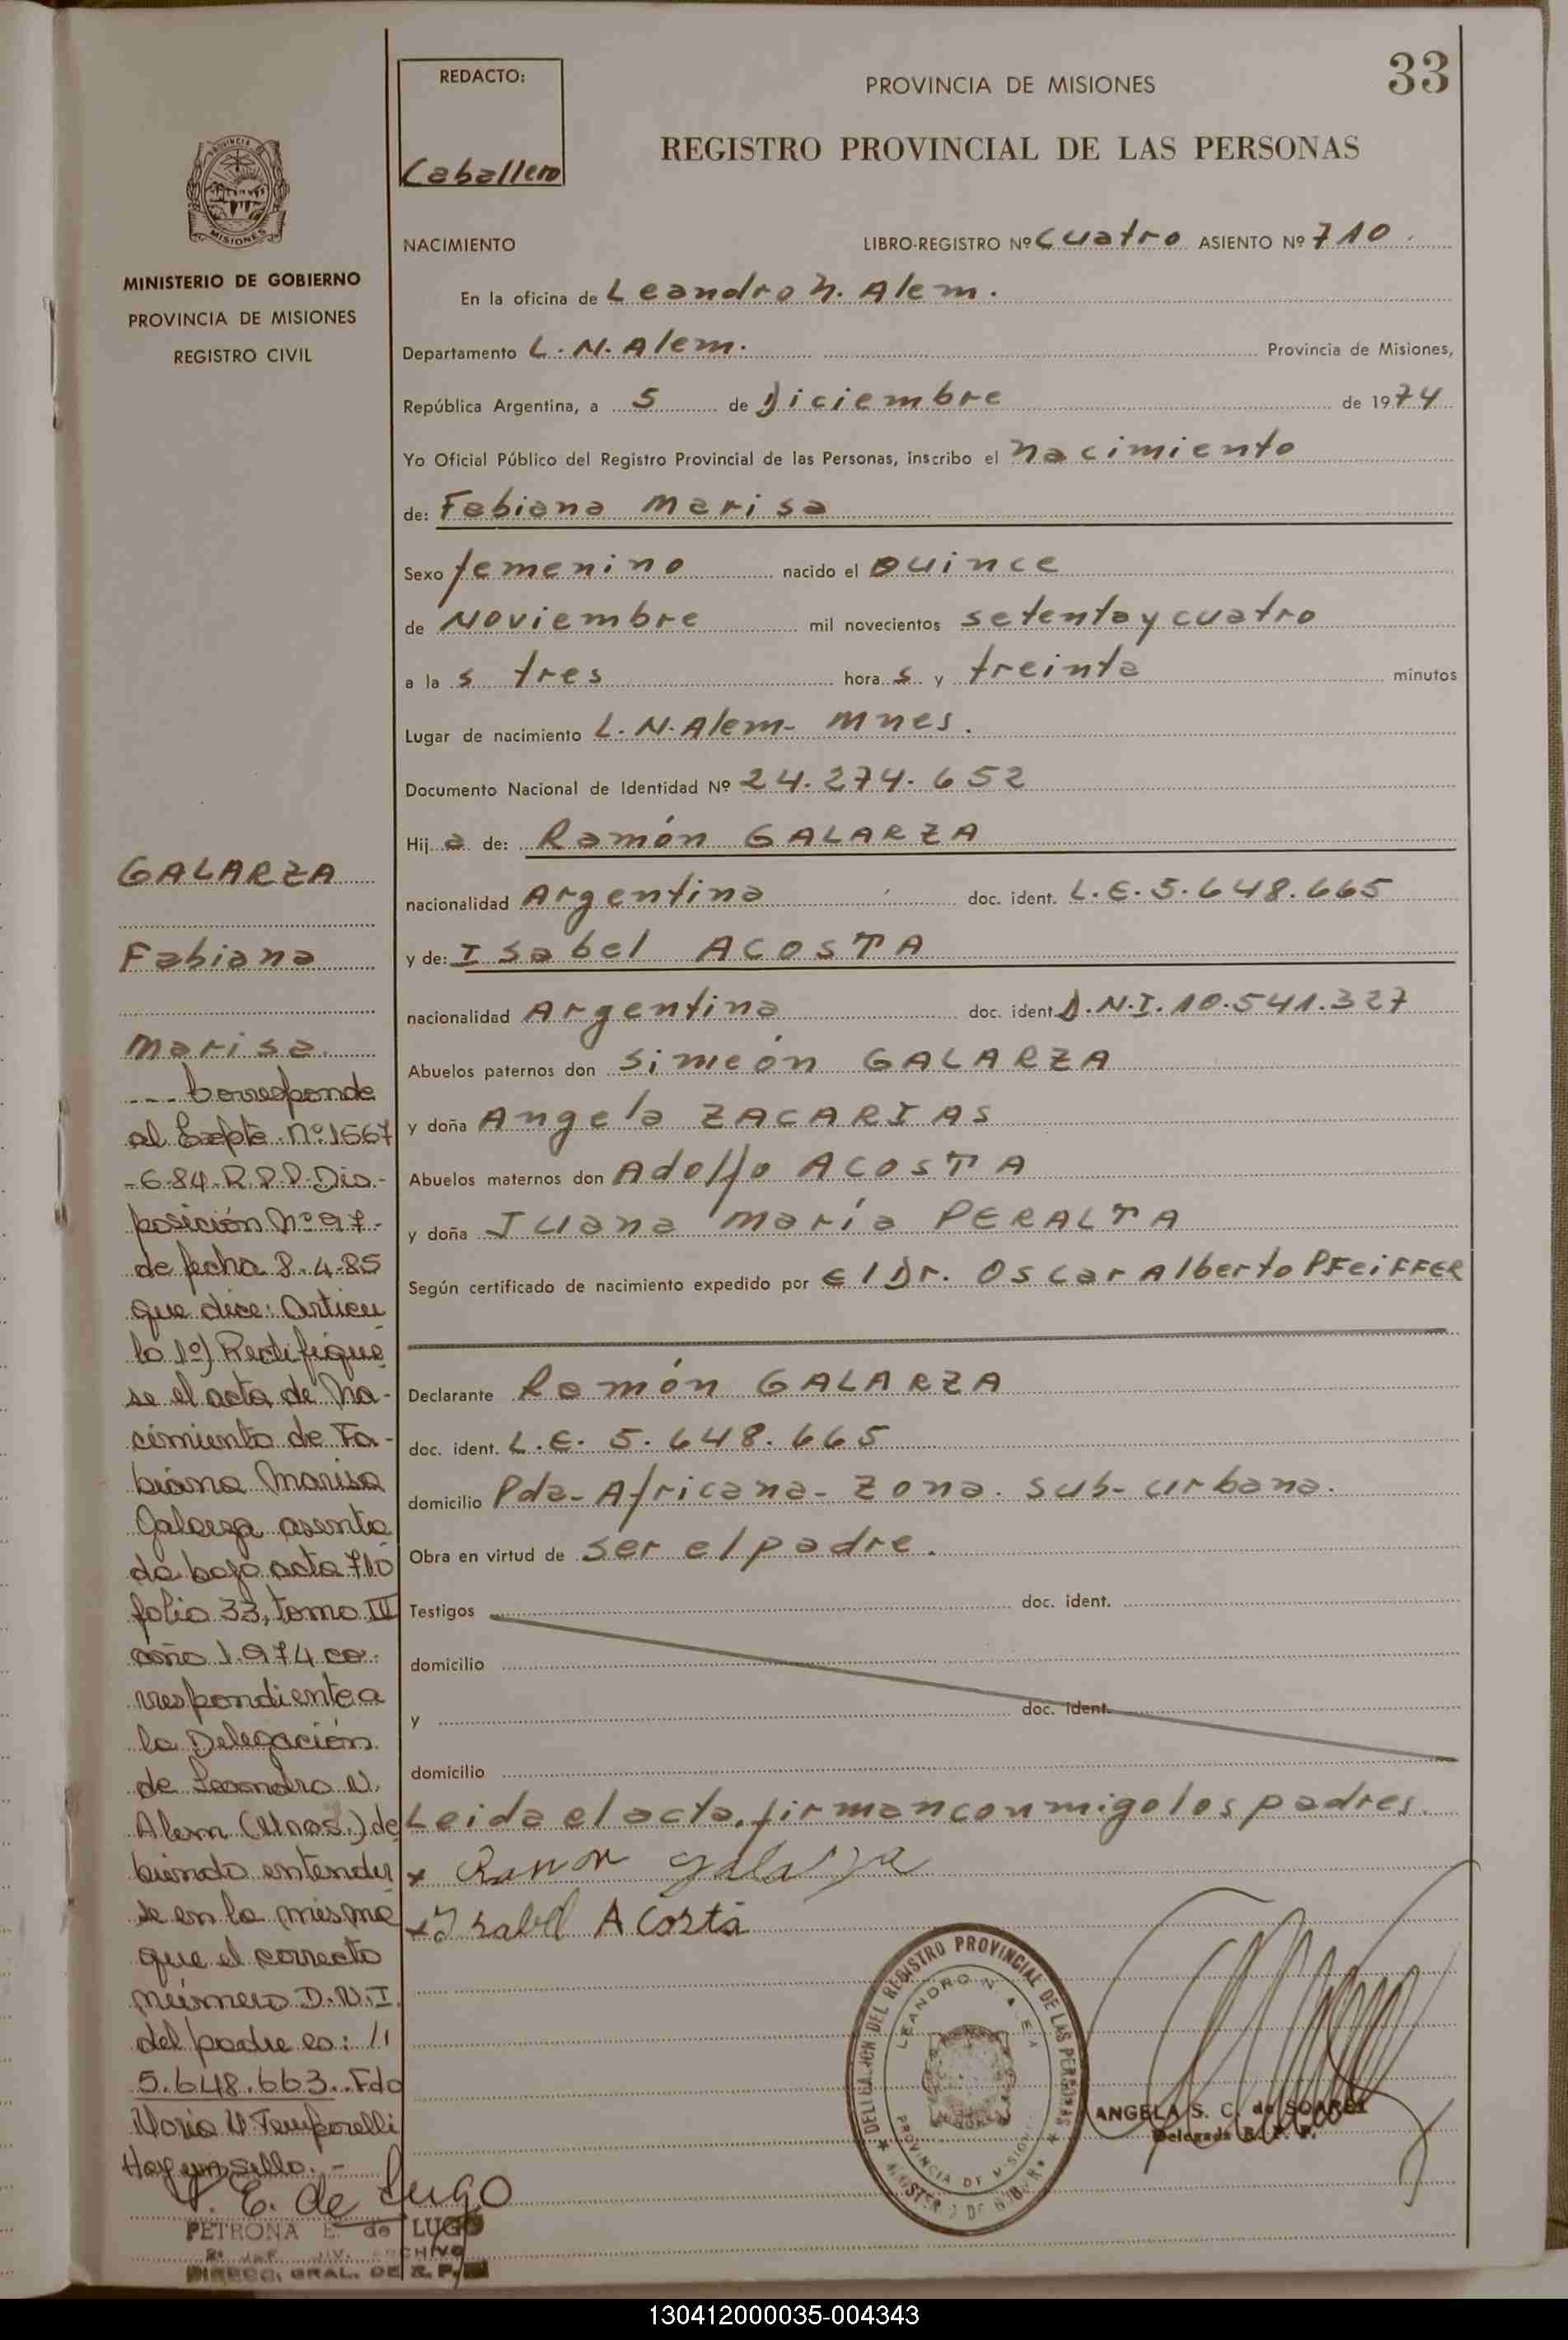 33
REDACTO:
Caballero
PROVINCIA DE MISIONES
REGISTRO PROVINCIAL DE LAS PERSONAS
PROVINCIA DE
MISIONES
MINISTERIO DE GOBIERNO
PROVINCIA DE MISIONES
REGISTRO CIVIL
NACIMIENTO LIBRO-REGISTRO Nº Cuatro ASIENTO Nº 710
En la oficina de Leandro N. Alem.
Departamento L. N. Alem. Provincia de Misiones,
República Argentina, a 5 de Diciembre de 1974
Yo Oficial Público del Registro Provincial de las Personas, inscribo el nacimiento
de: Fabiana Marisa
Sexo femenino nacido el Quince
de Noviembre mil novecientos setenta y cuatro
a la s tres hora s y treinta minutos
Lugar de nacimiento L. N. Alem- Mnes.
Documento Nacional de Identidad Nº 24.274.652
Hij a de: Ramón GALARZA
nacionalidad Argentina doc. ident. L.E. 5.648.665
y de: Isabel ACOSTA
nacionalidad Argentina doc. ident D.N.I. 10.541.327
Abuelos paternos don Simeón GALARZA
y doña Angela ZACARIAS
Abuelos maternos don Adolfo ACOSTA
y doña Juana María PERALTA
Según certificado de nacimiento expedido por el Dr. Oscar Alberto PFEIFFER
Declarante Ramón GALARZA
doc. ident. L.E. 5.648.665
domicilio Pda- Africana- Zona. sub-urbana.
Obra en virtud de ser el padre.
Testigos doc. ident.
domicilio
y doc. ident.
domicilio
Leida el acta, firman conmigo los padres.
x Ramon Galarza
x Isabel Acosta
GALARZA
Fabiana
Marisa.
--- Corresponde
al Expte. Nº 1567
-684-R.P.P-Dis-
posición Nº 97-
de fecha 8-4-85
que dice: Articu
lo 1º) Rectifique
se el acta de Na-
cimiento de Fa-
biana Marisa
Galarza asenta
da bajo acta 710
folio 33, tomo IV
año 1.974 co-
rrespondiente a
la Delegación
de Leandro N.
Alem (Mnes.) de
biendo entender
se en la misma
que el correcto
número D.N.I.
del padre es: //
5.648.663. Fdo
Maria V. Temporelli
Hay un sello. -
P. E. de Lugo
PETRONA E. de LUGO
ARCHIVO
DIRECC. GRAL. DE R. P.
DELEGACION DEL REGISTRO PROVINCIAL DE LAS PERSONAS
LEANDRO N. ALEM
PROVINCIA DE MISIONES
ANGELA S. C. de SOARES
Delegada R. P. P.
130412000035-004343